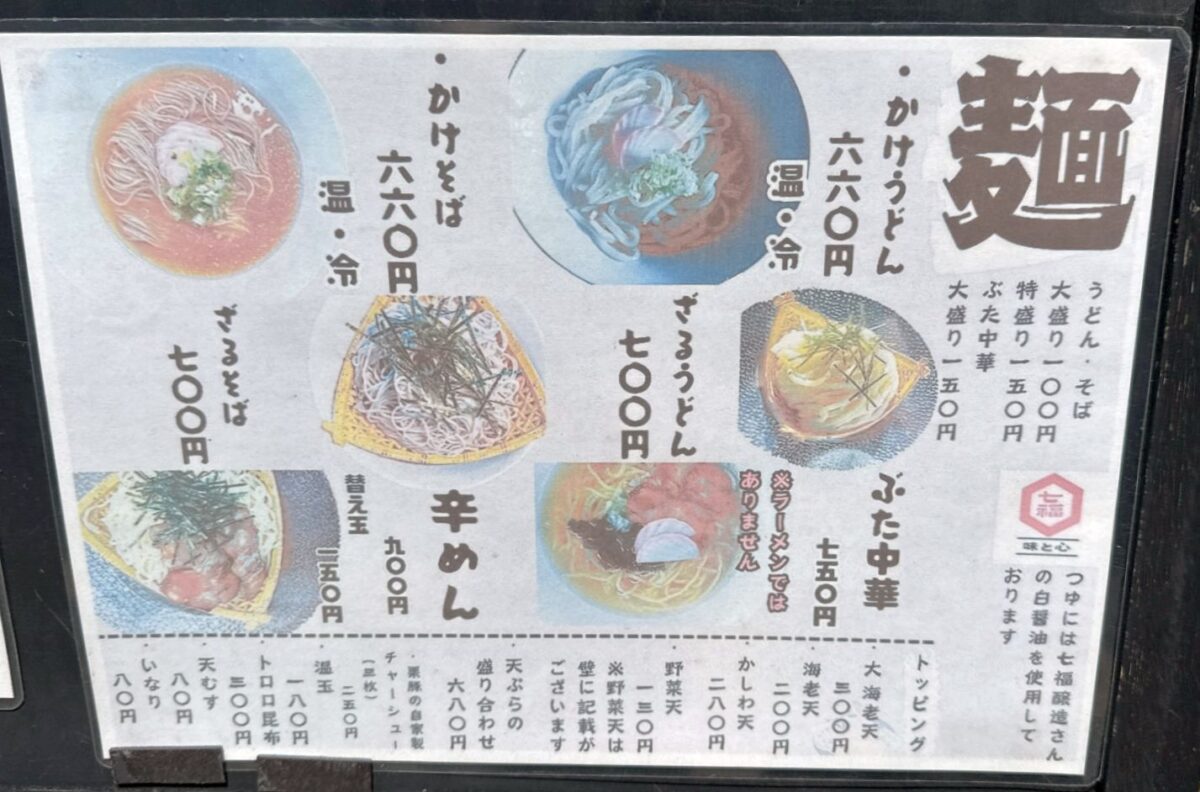 麺
うどん・そば
大盛り一〇〇円
特盛り一五〇円
ぶた中華
大盛り一五〇円
七福
味と心
つゆには七福醸造さん
の白醤油を使用して
おります
・かけうどん
六六〇円
温・冷
・かけそば
六六〇円
温・冷
ざるうどん
七〇〇円
ざるそば
七〇〇円
ぶた中華
七五〇円
※ラーメンでは
ありません
辛めん
九〇〇円
替え玉
一五〇円
トッピング
・大海老天
三〇〇円
海老天
二〇〇円
・かしわ天
二八〇円
野菜天
一三〇円
※野菜天は
壁に記載が
ございます
・天ぷらの
盛り合わせ
六八〇円
・栗豚の自家製
チャーシュー
二五〇円
・温玉
一八〇円
・トロロ昆布
三〇〇円
・天むす
八〇円
・いなり
八〇円